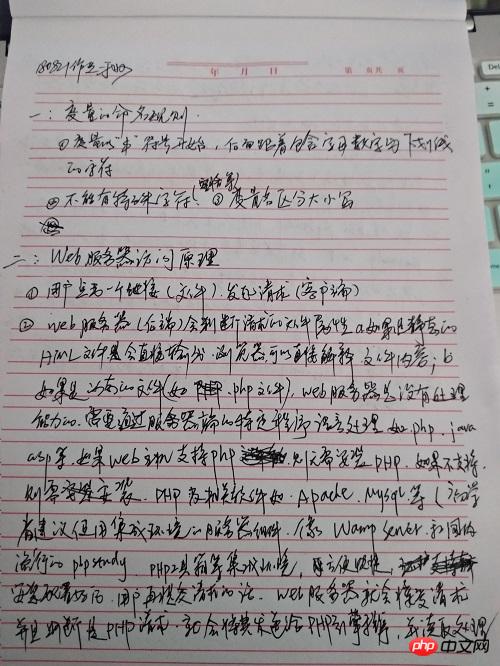 年 月 日 第 页 共 页
一：变量的命名规则.
①变量以"$"符号开始，后面跟着包含字母数字与下划线
的字符
②不能有特殊字符 (空格等) ③变量名区分大小写
二：Web服务器访问原理
①用户点击一个链接(文件).发起请求(客户端)
②web服务器(后端)会判断请求的文件属性 a如果是静态的
HTML文件是会直接输出.浏览器可以直接解释文件内容,b
如果是动态的文件(如 .php文件), web服务器是没有处理
能力的.需要通过服务器端的特定程序语言处理 如php.java
asp等.如果web主机支持php 则无需安装PHP.如果不支持.
则需要安装.PHP及相关软件如.Apache.Mysql.等(
建议使用集成环境的服务器组件.像 Wamp Server 和国内
流行的phpstudy PHP工具箱等集成环境,
用户再提交请求的话.Web服务器就会接受请求
并且判断是PHP请求.就会将其发送给PHP引擎 读取处理
php 中文网
Del